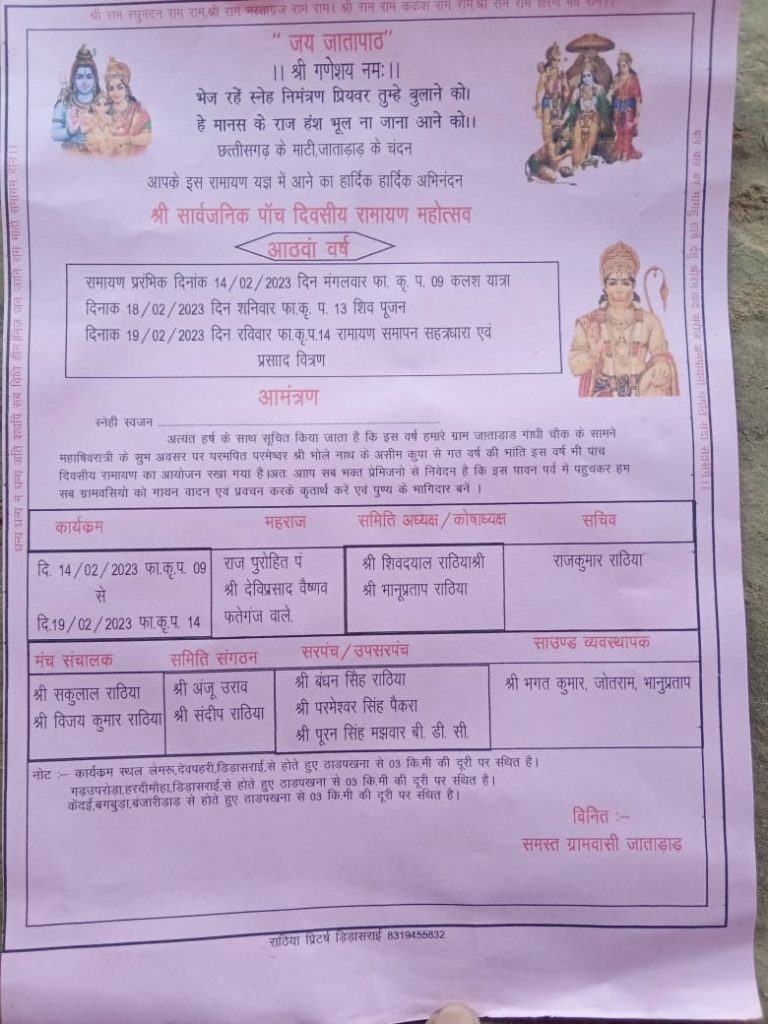 श्री राम रघुनंदन राम राम,श्री राम भरताग्रज राम राम। श्री राम राम
" जय जातापाठ"
।। श्री गणेशय नमः।।
भेज रहें स्नेह निमंत्रण प्रियवर तुम्हे बुलाने को।
हे मानस के राज हंश भूल ना जाना आने को।।
छत्तीसगढ़ के माटी,जाताड़ाड़ के चंदन
आपके इस रामायण यज्ञ में आने का हार्दिक हार्दिक अभिनंदन
श्री सार्वजनिक पॉच दिवसीय रामायण महोत्सव
आठवां वर्ष
रामायण प्ररंभिक दिनांक 14/02/2023 दिन मंगलवार फा. कृ. प. 09 कलश यात्रा
दिनाक 18/02/2023 दिन शनिवार फा.कृ. प. 13 शिव पूजन
दिनाक 19/02/2023 दिन रविवार फा.कृ.प.14 रामायण समापन सहत्रधारा एवं
प्रसााद वित्रण
आमंत्रण
स्नेही स्वजन ........................................................................
अत्यंत हर्ष के साथ सूचित किया जाता है कि इस वर्ष हमारे ग्राम जाताड़ाड गांधी चौक के सामने
महाषिवरात्री के सुभ अवसर पर परमपित परमेष्वर श्री भोले नाथ के असीम कुपा से गत वर्ष की भांति इस वर्ष भी पांच
दिवसीय रामायण का आयोजन रखा गया है।अतः आाप सब भक्त प्रेमिजनो से निवेदन है कि इस पावन पर्व में पहुचकर हम
सब ग्रामवसियो को गायन वादन एवं प्रवचन करके कृतार्थ करें एवं पुण्य के भागिदार बनें ।
कार्यक्रम महराज समिति अध्यक्ष/कोषाध्यक्ष सचिव
दि. 14/02/2023 फा.कृ.प. 09
से
दि.19/02/2023 फा.कृ.प. 14
राज पुरोहित पं
श्री देविप्रसाद वैष्णव
फतेगंज वाले.
श्री शिवदयाल राठियाश्री
श्री भानूप्रताप राठिया
राजकुमार राठिया
मंच संचालक समिति संगठन सरपंच/उपसरपंच साउण्ड व्यवस्थापक
श्री सकुलाल राठिया
श्री विजय कुमार राठिया
श्री अंजू उराव
श्री संदीप राठिया
श्री बंधन सिंह राठिया
श्री परमेश्वर सिंह पैकरा
श्री पूरन सिंह मझवार बी. डी. सी.
श्री भगत कुमार, जोतराम, भानुप्रताप
नोट :– कार्यकम स्थल लेमरू,देवपहरी,डिड़ासराई,से होते हुए ठाडपखना से 03 कि.मी की दूरी पर सथित है।
गढउपरोड़ा,हरदीमौहा,डिडासराई,से होते हुए ठाडपखना से 03 कि.मी की दूरी पर सथित है।
केंदई,बगबुड़ा,बंजारीडाड़ से होते हुए ठाडपखना से 03 कि.मी की दूरी पर सथित है।
विनित :–
समस्त ग्रामवासी जाताड़ाड़
राठिया प्रिटर्ष डि़ड़ासराई 8319455832